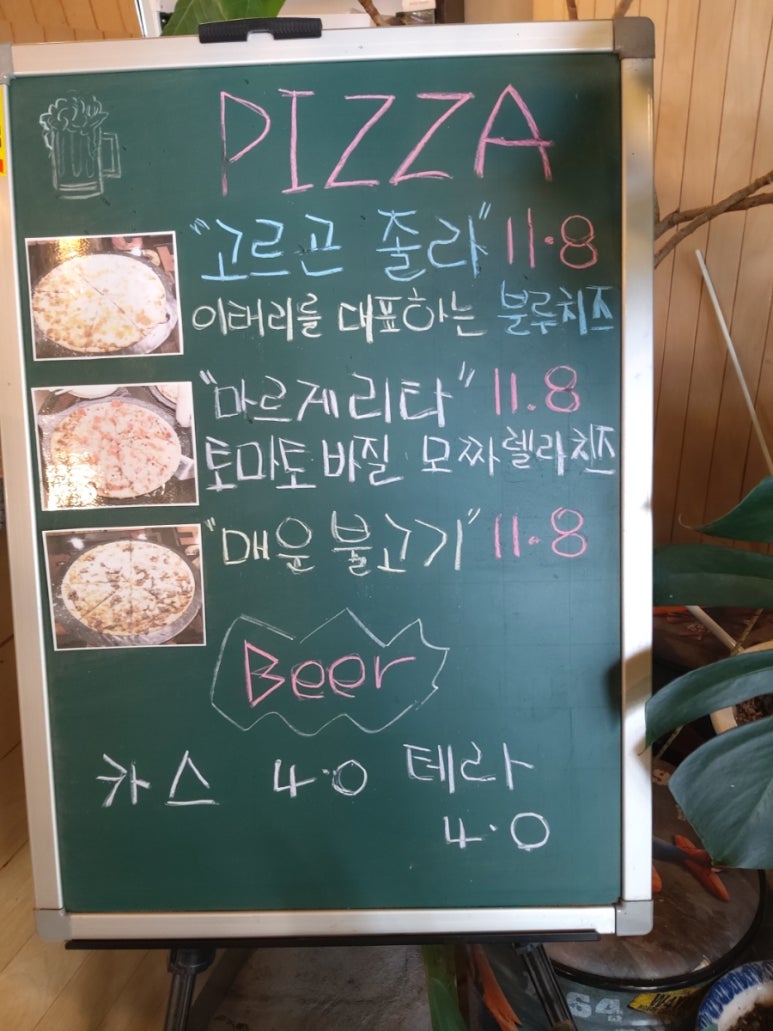 PIZZA
"고르곤 졸라" 11.8
이태리를 대표하는 블루치즈
"마르게리타" 11.8
토마토 바질 모짜렐라치즈
"매운 불고기" 11.8
Beer
카스 4.0 테라
4.0
64